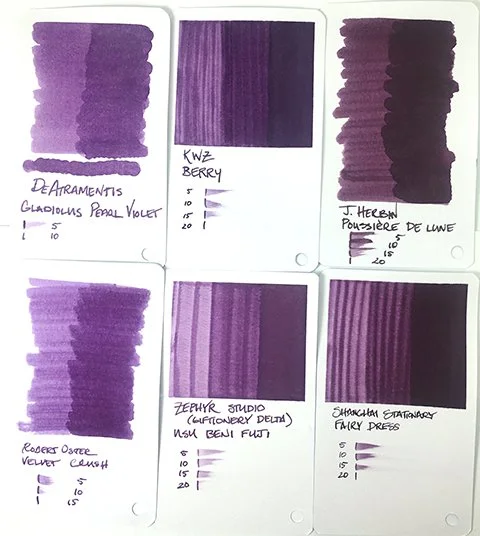 DeAtramentis
Gladiolus Pearl Violet
5
10
KWZ
Berry
5
10
15
20
J. Herbin
Poussière de Lune
5
10
15
20
Robert Oster
Velvet Crush
5
10
15
Zephyr Studio
(Giftionery Delta)
Usu Beni Fuji
5
10
15
20
Shanghai Stationary
Fairy Dress
5
10
15
20